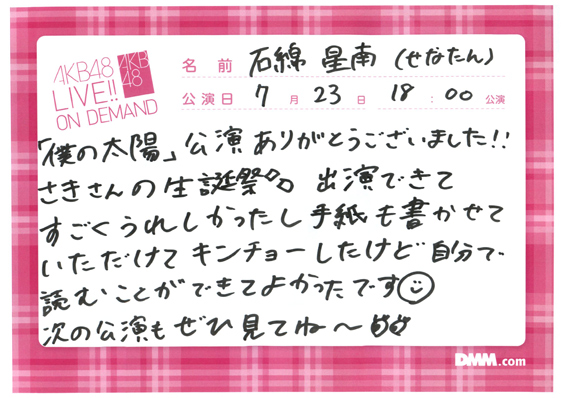 AKB48
LIVE!!
ON DEMAND
AKB
48
名前 石綿 星南 (せなたん)
公演日 7月23日 18:00公演
「僕の太陽」公演ありがとうございました!!
さきさんの生誕祭 出演できて
すごくうれしかったし手紙も書かせて
いただけてキンチョーしたけど自分で
読むことができてよかったです
次の公演もぜひ見てね〜
DMM.com